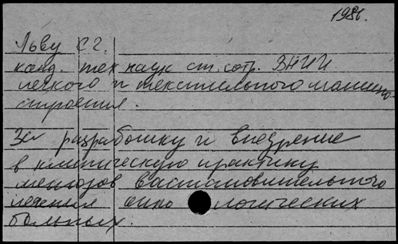 1986.
Льву С.Г.
канд. тех наук ст. сотр. ВНИИ
легкого и текстильного машино-
строения.
За разработку и внедрение
в клиническую практику
методов восстановительного
лечения онко логических
больных.